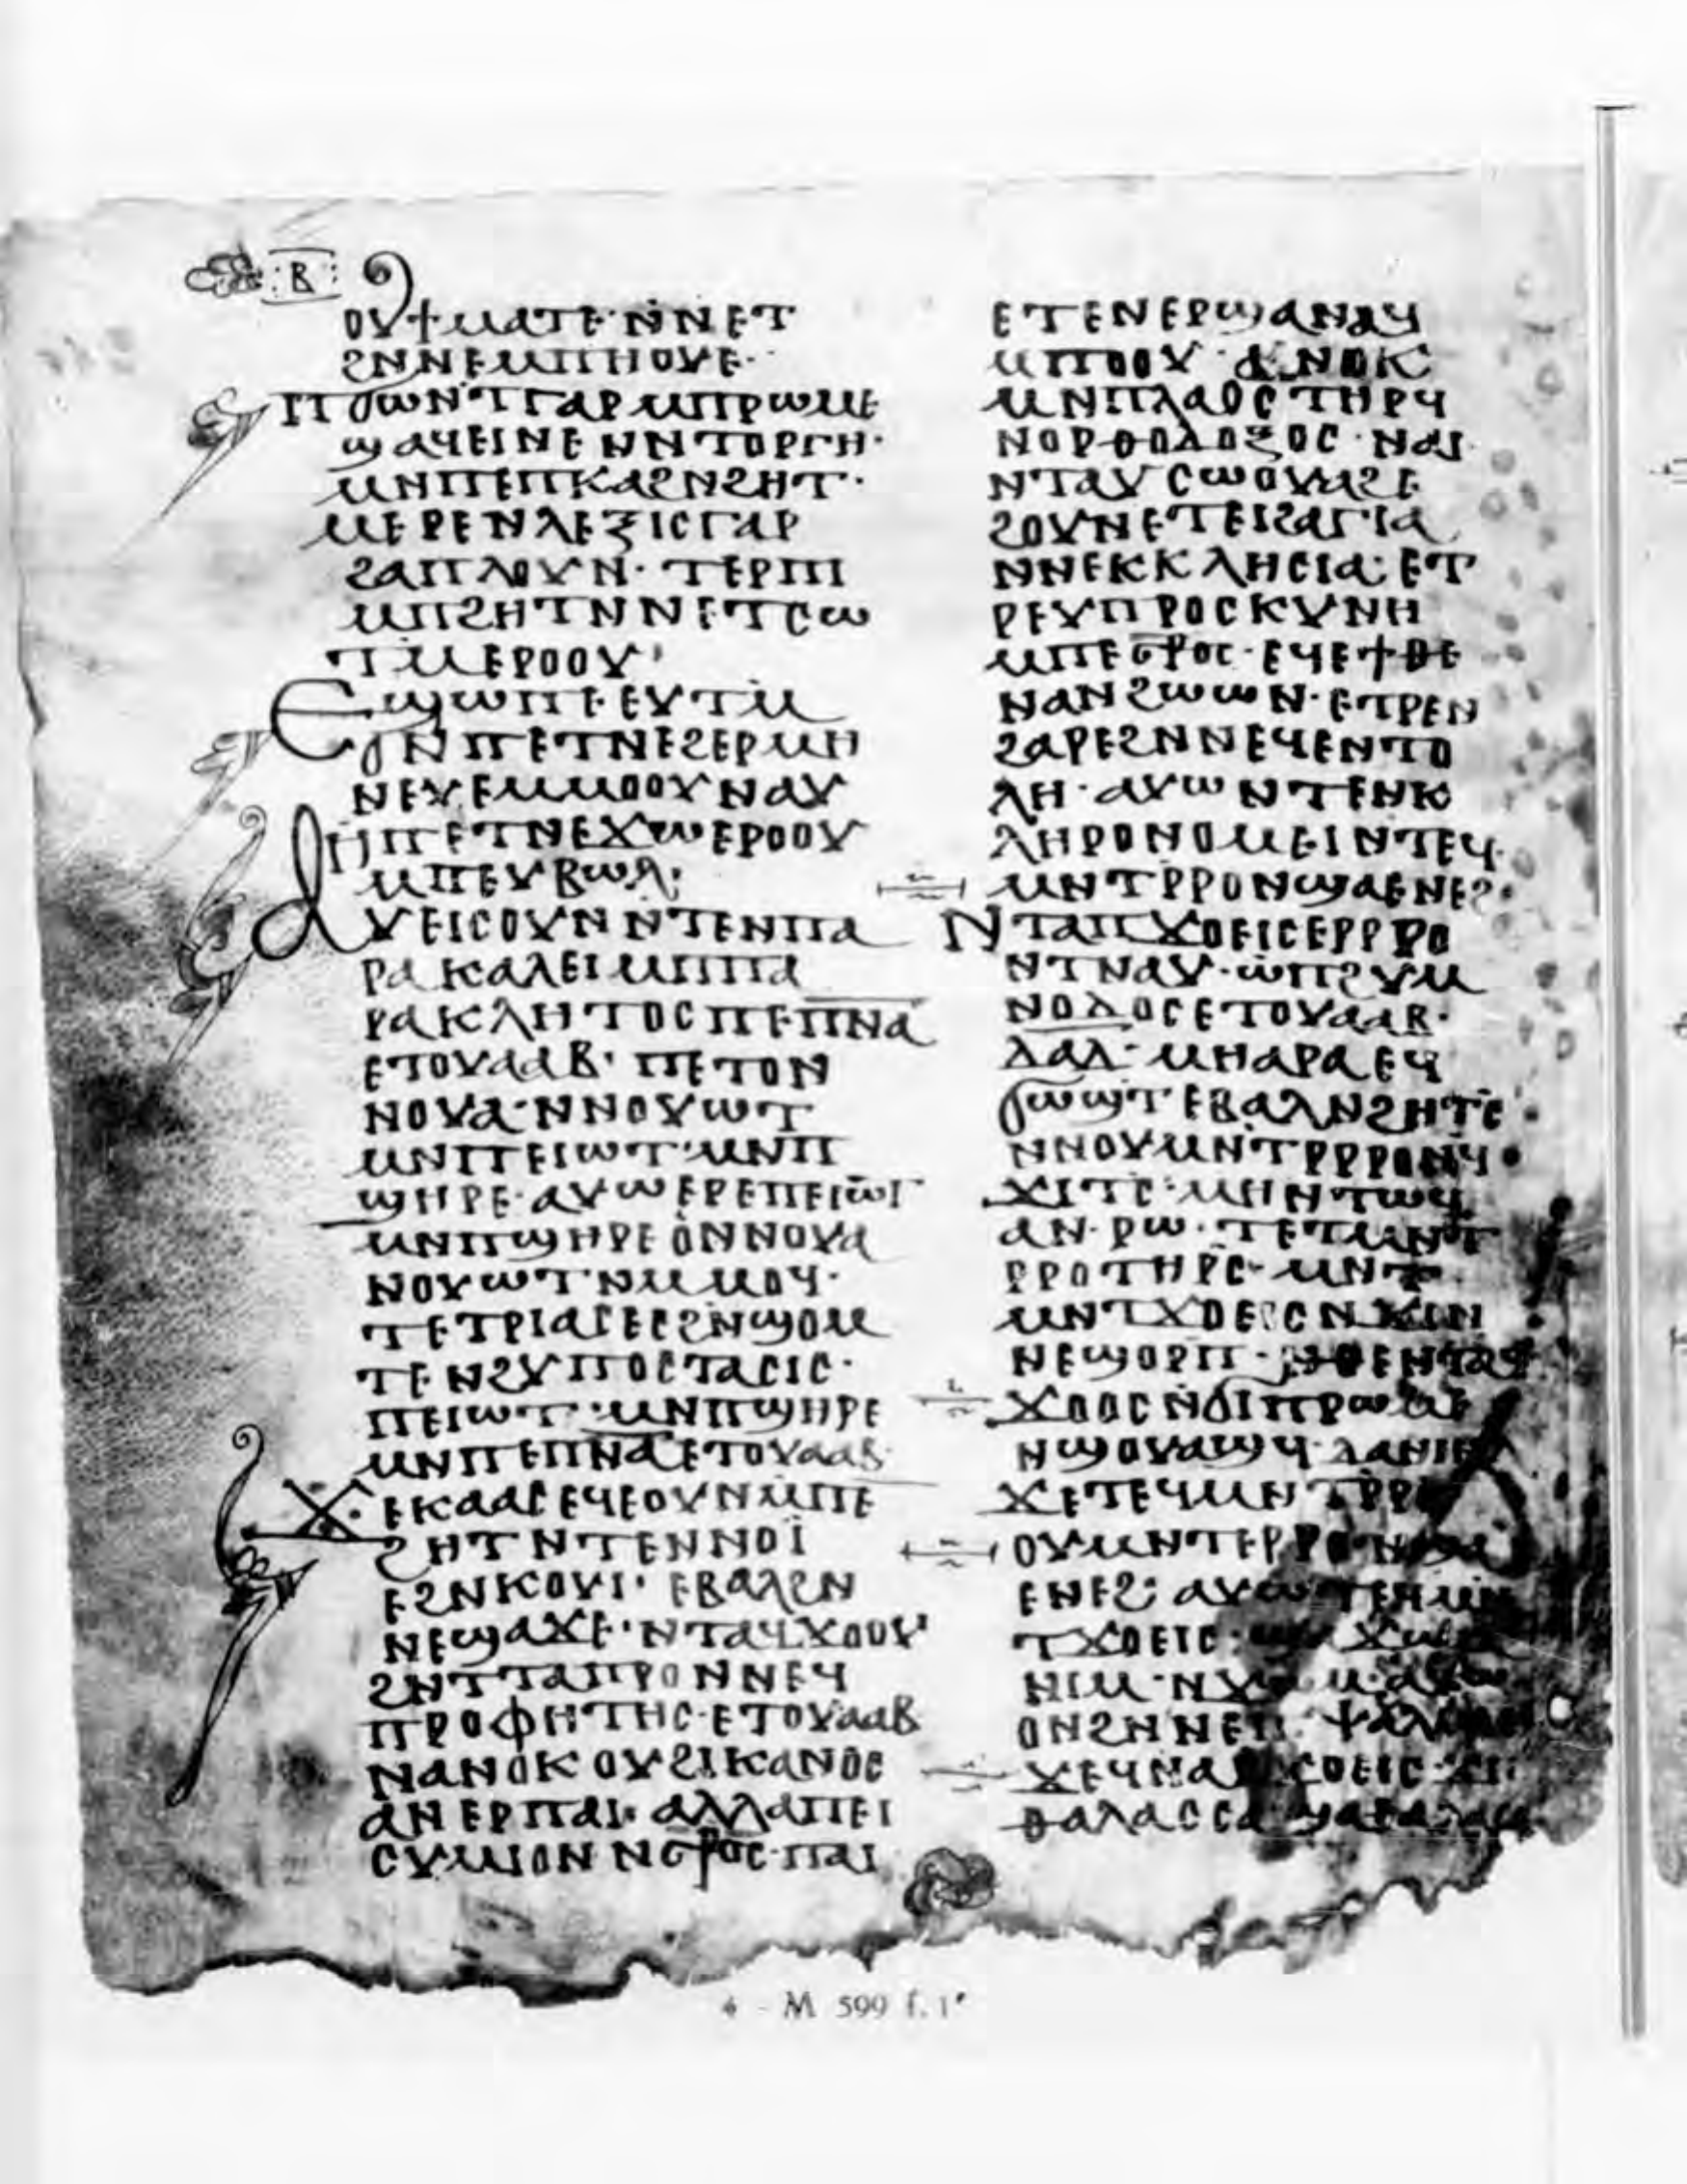 Ⲃ
ⲟⲩϯⲙⲁⲧⲉ·ⲛ̇ⲛⲉⲧ
ϩⲛⲛⲉⲙⲡⲏⲟⲩⲉ·
ⲡϭⲱⲛⲧⲅⲁⲣⲙⲡⲣⲱⲙⲉ
ϣⲁϥⲉⲓⲛⲉⲛⲛⲧⲟⲣⲅⲏ·
ⲙⲛⲡⲉⲡⲕⲁϩⲛϩⲏⲧ·
ⲙⲉⲣⲉⲛⲗⲉⲝⲓⲥⲅⲁⲣ
ϩⲁⲡⲗⲟⲩⲛ·ⲧⲉⲣⲡⲓ
ⲙⲡϩⲏⲧⲛⲛⲉⲧⲥⲱ
ⲧⲙⲉⲣⲟⲟⲩ
ⲉϣⲱⲡⲉⲉⲩⲧⲙ
ϭⲛⲡⲉⲧⲛⲉϩⲉⲣⲙⲏ
ⲛⲉⲩⲉⲙⲙⲟⲟⲩⲛⲁⲩ
ⲏⲡⲉⲧⲛⲉϫⲱⲉⲣⲟⲟⲩ
ⲙⲡⲉⲩⲃⲱⲗ·
ⲁⲩⲉⲓⲥⲟⲩⲛⲛⲧⲉⲛⲡⲁ
ⲣⲁⲕⲁⲗⲉⲓⲙⲡⲡⲁ
ⲣⲁⲕⲗⲏⲧⲟⲥⲡⲉⲡ̅ⲛ̅ⲁ̅
ⲉⲧⲟⲩⲁⲁⲃ·ⲡⲉⲧⲟⲛ
ⲛⲟⲩⲁ·ⲛⲛⲟⲩⲱⲧ
ⲙⲛⲡⲉⲓⲱⲧ·ⲙⲛⲡ
ϣⲏⲣⲉ·ⲁⲩⲱⲉⲣⲉⲡⲉⲓⲱⲧ
ⲙⲛⲡϣⲏⲣⲉⲟⲛⲛⲟⲩⲁ
ⲛⲟⲩⲱⲧⲛⲙⲙⲟϥ·
ⲧⲉⲧⲣⲓⲁⲥⲉⲥϩⲛϣⲟⲙ
ⲧⲉⲛϩⲩⲡⲟⲥⲧⲁⲥⲓⲥ·
ⲡⲉⲓⲱⲧ·ⲙⲛⲡϣⲏⲣⲉ
ⲙⲛⲡⲉⲡ̅ⲛ̅ⲁ̅ⲉⲧⲟⲩⲁⲁⲃ
ϫⲉⲕⲁⲁⲥⲉϥⲉⲟⲩⲛⲙⲡⲉ
ϩⲏⲧⲛⲧⲉⲛⲛⲟⲓ
ⲉϩⲛⲕⲟⲩⲓ·ⲉⲃⲁⲗϩⲛ
ⲛⲉϣⲁϫⲉ·ⲛⲧⲁϥϫⲟⲟⲩ
ϩⲛⲧⲧⲁⲡⲣⲟⲛⲛⲉϥ
ⲡⲣⲟⲫⲏⲧⲏⲥ·ⲉⲧⲟⲩⲁⲁⲃ
ⲛⲁⲛⲟⲕⲟⲩϩⲓⲕⲁⲛⲟⲥ
ⲁⲛⲉⲣⲡⲁⲓ·ⲁⲗⲗⲁⲡⲉⲓ
ⲥⲩⲙⲓⲟⲛⲛⲥ⳨ⲟⲥ·ⲡⲁⲓ
ⲉⲧⲉⲛⲉⲣϣⲁⲛⲁϥ
ⲙⲡⲟⲟⲩ·ⲁⲛⲟⲕ
ⲙⲛⲡⲗⲁⲟⲥⲧⲏⲣϥ
ⲛⲟⲣⲑⲟⲇⲟⲝⲟⲥ·ⲛⲁⲓ
ⲛⲧⲁⲩⲥⲱⲟⲩⲁϩⲉ
ϩⲟⲩⲛⲉⲧⲉⲓϩⲁⲅⲓⲁ
ⲛⲛⲉⲕⲕⲗⲏⲥⲓⲁ·ⲉⲧ
ⲣⲉⲩⲡⲣⲟⲥⲕⲩⲛⲏ
ⲙⲡⲉⲥ⳨ⲟⲥ·ⲉϥⲉϯⲑⲉ
ⲛⲁⲛϩⲱⲱⲛ·ⲉⲧⲣⲉⲛ
ϩⲁⲣⲉϩⲛⲛⲉϥⲉⲛⲧⲟ
ⲗⲏ·ⲁⲩⲱⲛⲧⲉⲛⲕ
ⲗⲏⲣⲟⲛⲟⲙⲉⲓⲛⲧⲉϥ
ⲙⲛⲧⲣⲣⲟⲛϣⲁⲉⲛⲉϩ·
ⲛⲧⲁⲡϫⲟⲉⲓⲥⲉⲣⲣⲣⲟ
ⲛⲧⲛⲁⲩ·ⲱⲡϩⲩⲙ
ⲛⲟⲇⲟⲥⲉⲧⲟⲩⲁⲁⲃ·
ⲇⲁⲇ·ⲙⲏⲁⲣⲁⲉϥ
ϭⲱϣⲧⲉⲃⲁⲗⲛϩⲏⲧϥ
ⲛⲛⲟⲩⲙⲛⲧⲣⲣⲣⲟⲛϥ
ϫⲓⲧⲥ·ⲙⲏⲛⲧⲱϥ
ⲁⲛ·ⲣⲱ·ⲧⲉⲧⲙⲛⲧ
ⲣⲣⲟⲧⲏⲣⲥ·ⲙⲛⲧ
ⲙⲛⲧϫⲟⲉⲓⲥⲛϫⲓⲛ
ⲛⲉϣⲟⲣⲡ·ⲛⲑⲉⲛⲧⲁϥ
ϫⲟⲟⲥⲛϭⲓⲡⲣⲱⲙⲉ
ⲛϣⲟⲩⲁϣϥ·ⲇⲁⲛⲓⲏ
ϫⲉⲧⲉϥⲙⲛⲧⲣⲣ
ⲟⲩⲙⲛⲧⲉⲣⲣⲟⲛϣⲁ
ⲉⲛⲉϩ·ⲁⲩⲱⲧⲉϥⲙⲛ
ⲧϫⲟⲉⲓⲥ·ϣⲁϫⲱⲙ
ⲛⲓⲙ·ⲛϫ
ⲟⲛϩⲛⲛⲉⲡ ⲯⲁⲗⲙⲟⲥ
ϫⲉϥⲛⲁ ϫⲟⲉⲓⲥ·ϫⲓⲛ
ⲑⲁⲗⲁⲥⲥⲁ ϣⲁⲑⲁⲗⲁⲥ
4 - M 599 f. 1ᵛ